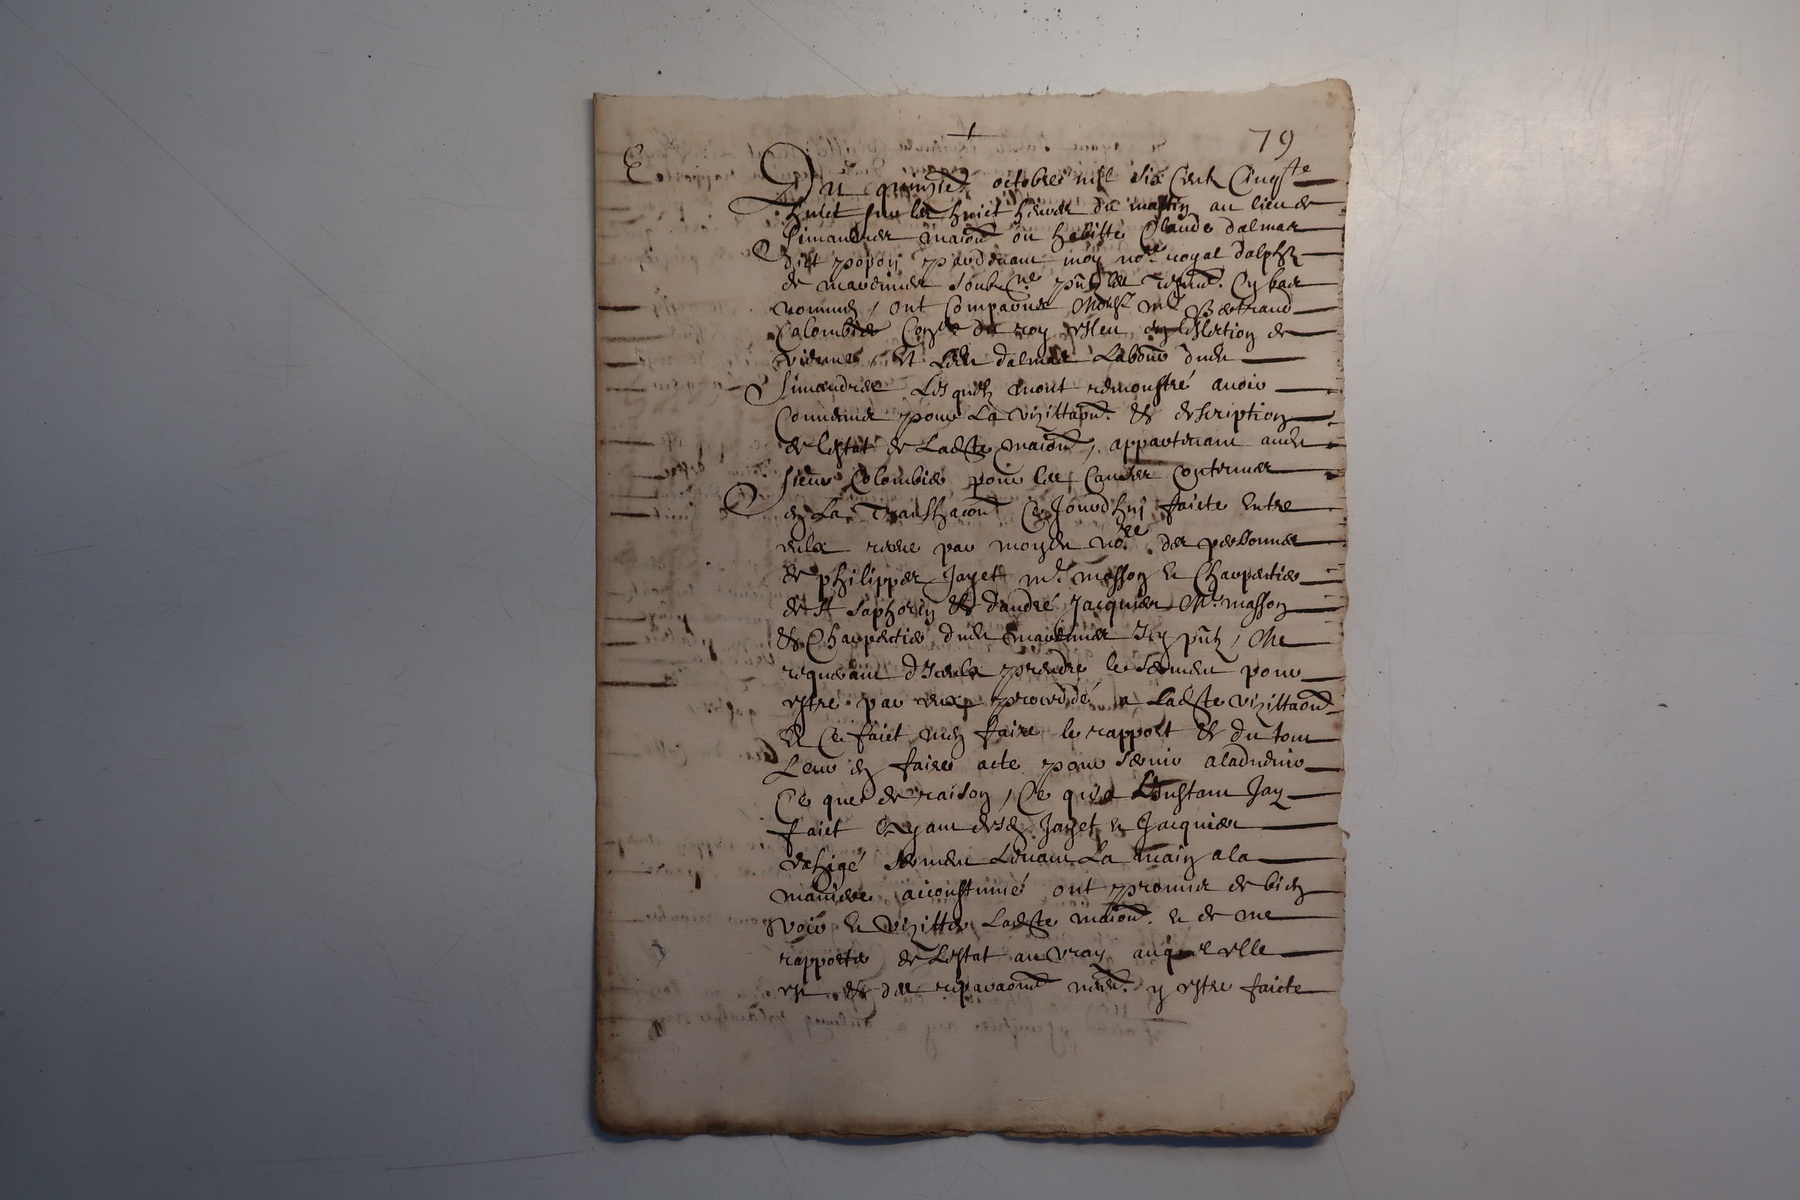 79
Du quinzie octobre mil six cent cinqte
huict sur les huict heures du mattin au lieu de
Simandres maison ou habitte Claude dalmas
dict popon pardevant moy nore royal dalphl
de marennes soubzne pntz les tesmns cy bas
nommes, ont comparus Monsr me Bertrand
Colombier Conser du roy esleu en leslection de
vienne, et dalmas labour dudt
Simandres Lesquelz mont remonstré avoir
convenus pour La vizittaon & description
de lestat de Ladte maison, appartenant audt
sieur Colombier pour les causes contenues
en La Transhaction Ce jourdhuy faicte entre
eulx receue par moydt nore des personnes
de philippes Jayet me masson et Charpentier
de St saphorin & dandré Jacquier Me masson
& Charpentier dudt marennes Icy pntz, Me
requerant diceulx prendre le serment pour
estre par eux proceddé a Ladte vizittaon
Et Ce faict men faire le rapport & du tout
Leur en faire acte pour servir a ladvenir
Ce que de raison, Ce qua Linstant Jay
faict Et ayant desd Jayet et Jacquier
exhigé serment Levant La main a la
maniere accoustumé ont promis de bien
voir et vizitter Ladte maison et de me
rapporter de Lestat au vray auquel elle
est & des reparaons necess y estre faicte